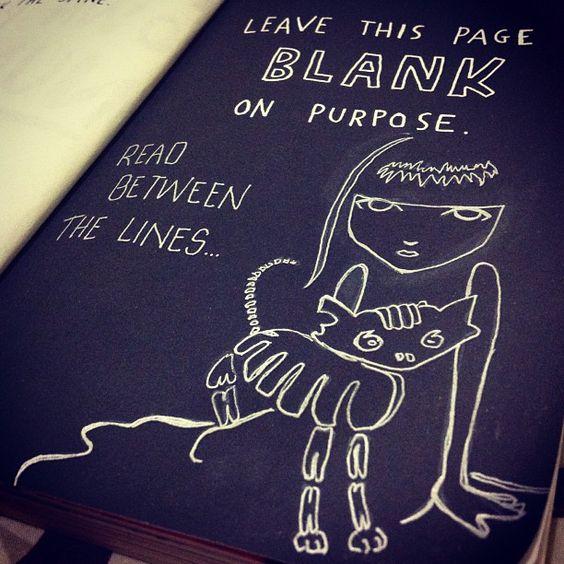 THE SPINE.
LEAVE THIS PAGE
BLANK
ON PURPOSE.
READ
BETWEEN
THE LINES...